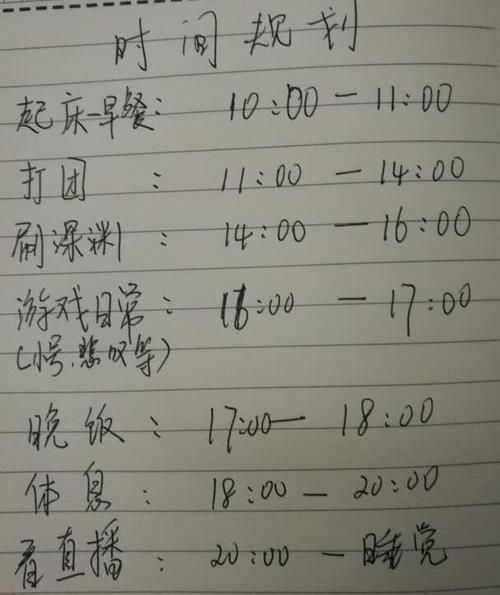 时间规划
起床-早餐: 10:00 — 11:00
打团 : 11:00 — 14:00
刷深渊 : 14:00 — 16:00
游戏日常: 16:00 — 17:00
(小号.悲叹等)
晚饭 : 17:00 — 18:00
休息 : 18:00 — 20:00
看直播 : 20:00 — 睡觉